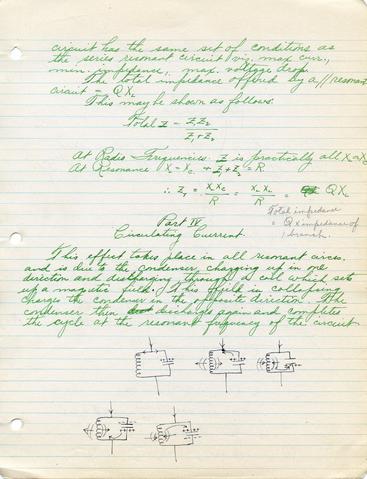 circuit has the same set of conditions as
the series resonant circuit, viz, max cur.,
min. impedance, max. voltage drop.
The total impedance offered by a // resonant
circuit = QXL
This may be shown as follows.
Total Z = Z1Z2
Z1+Z2
At Radio Frequencies Z is practically all X = X
At Resonance X = Xc + Z1 + Z2 = R
∴ ZT = XLXC / R = XLXL / R = QXL
Total impedance
= Q x impedance of
1 branch.
Part IV
Circulating Current
This effect takes place in all resonant circs.
and is due to the condenser charging up in one
direction and discharging through a coil which sets
up a magnetic field. This field in collapsing
charge the condenser in the opposite direction. The
condenser then discharges again and completes
the cycle at the resonant frequency of the circuit